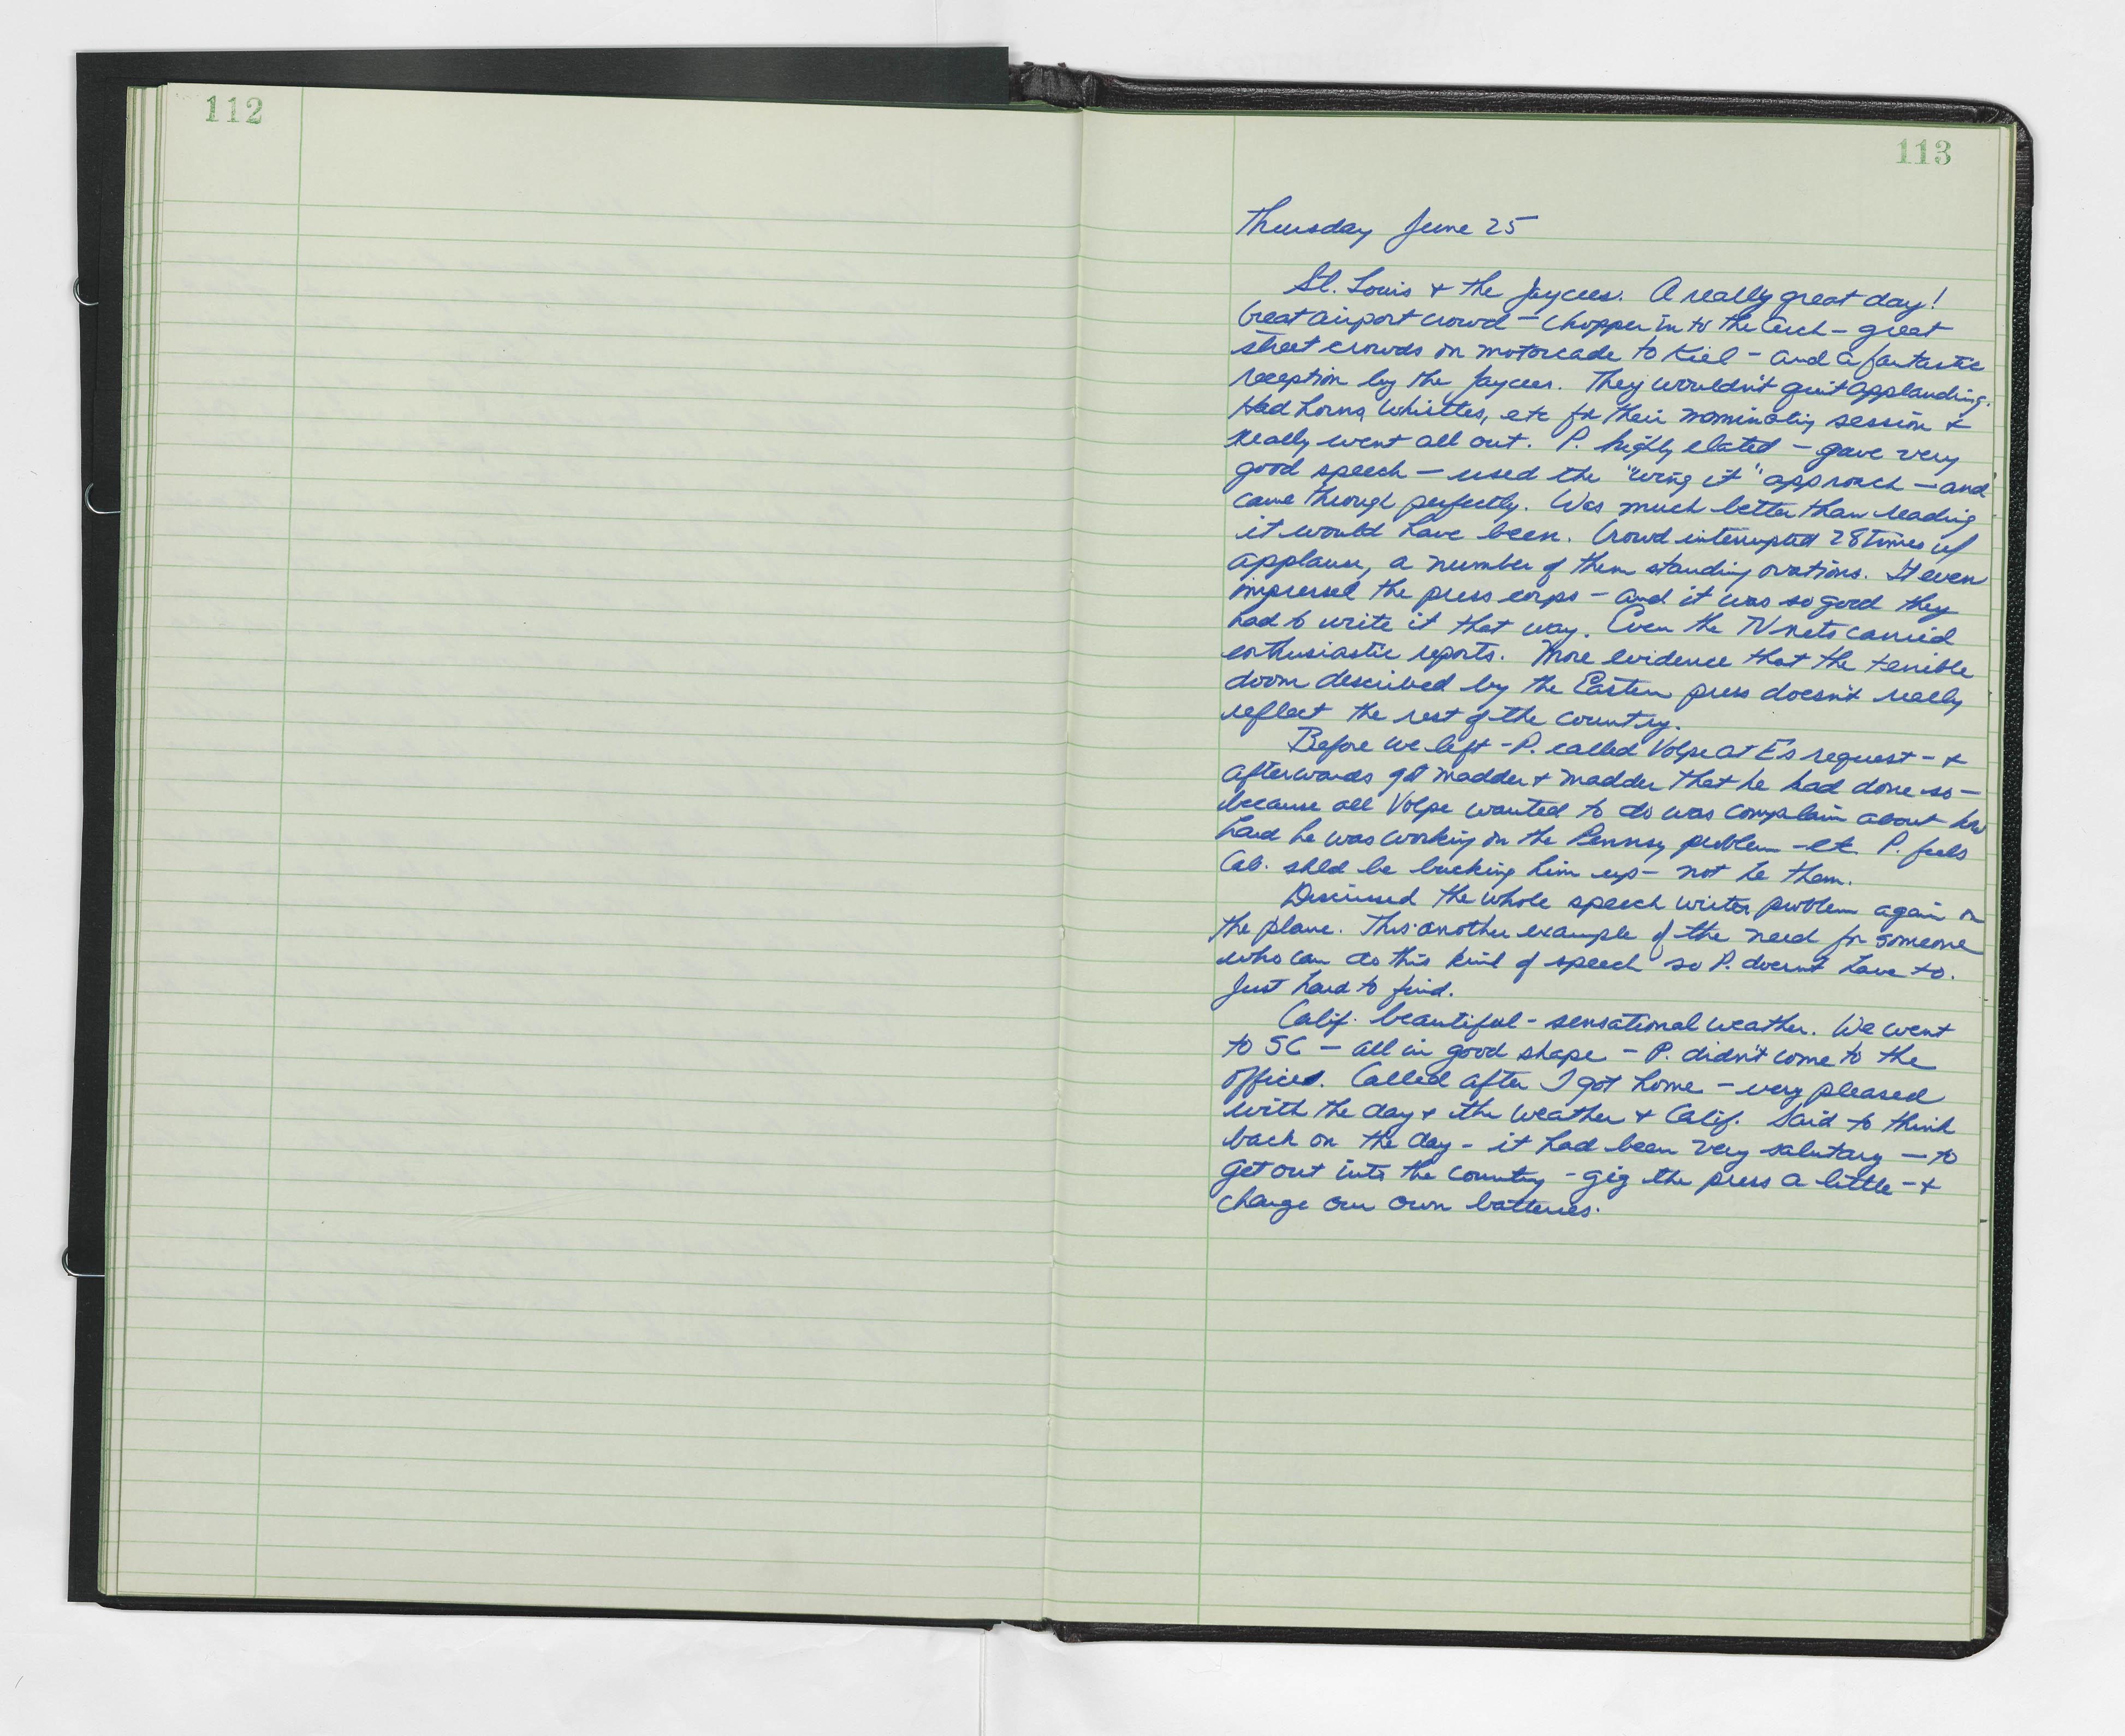 112
113
Thursday June 25
St. Louis + the Jaycees. A really great day!
Great airport crowd - chopper in to the Arch - great
street crowds on motorcade to Kiel - and a fantastic
reception by the Jaycees. They wouldn't quit applauding.
Had horns, whistles, etc for their nominating session +
really went all out. P. highly elated - gave very
good speech - used the "wing it" approach - and
came through perfectly. Was much better than reading
it would have been. Crowd interrupted 28 times w/
applause, a number of them standing ovations. It even
impressed the press corps - and it was so good they
had to write it that way. Even the TV nets carried
enthusiastic reports. More evidence that the terrible
doom described by the Eastern press doesn't really
reflect the rest of the country.
Before we left - P. called Volpe at E's request - +
afterwards got madder + madder that he had done so -
because all Volpe wanted to do was complain about how
hard he was working on the Pennsy problem - etc. P. feels
Cab. shld be backing him up - not he them.
Discussed the whole speech writer problem again on
the plane. This another example of the need for someone
who can do this kind of speech so P. doesn't have to.
Just hard to find.
Calif. beautiful - sensational weather. We went
to SC - all in good shape - P. didn't come to the
office. Called after I got home - very pleased
with the day + the weather + Calif. Said to think
back on the day - it had been very salutary - to
get out into the country - gig the press a little - +
charge our own batteries.